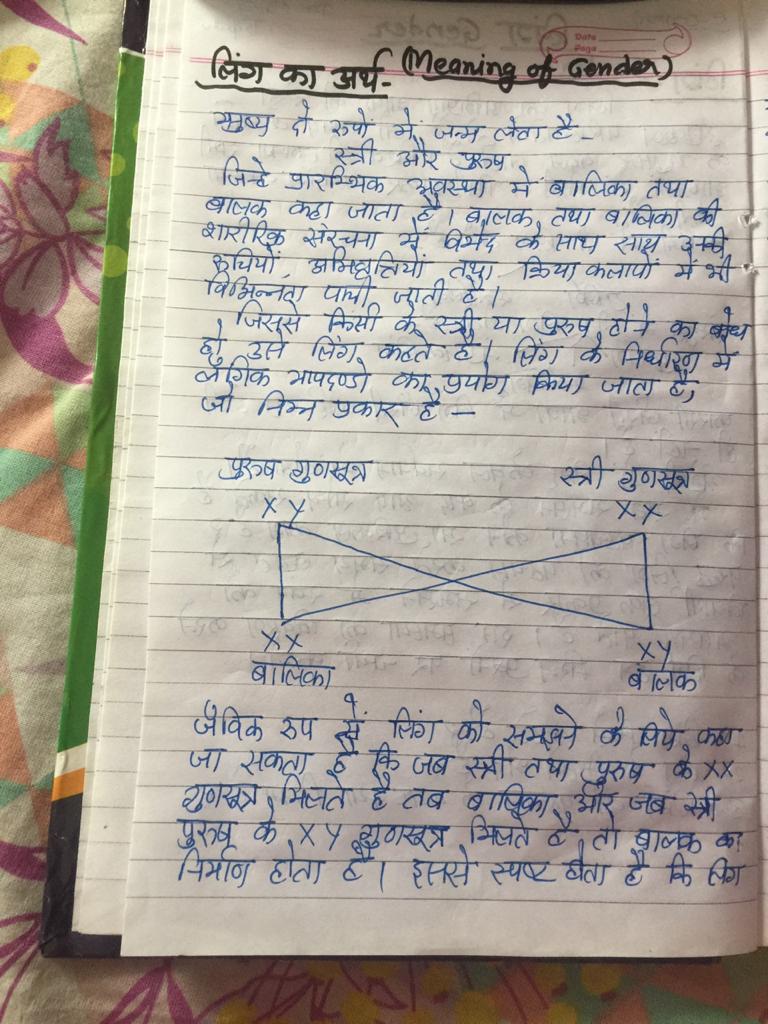 Date
Page
लिंग का अर्थ- (Meaning of Gender)
मनुष्य दो रूपों में जन्म लेता है –
स्त्री और पुरुष
जिन्हे प्रारम्भिक अवस्था में बालिका तथा
बालक कहा जाता है। बालक तथा बालिका की
शारीरिक संरचना में विभेद के साथ साथ उनकी
रुचियों, अभिवृत्तियों तथा क्रियाकलापों में भी
विभिन्नता पायी जाती है।
जिससे किसी के स्त्री या पुरुष होने का बोध
हो उसे लिंग कहते है। लिंग के निर्धारण में
लैंगिक मापदण्डो का प्रयोग किया जाता है,
जो निम्न प्रकार है –
पुरुष गुणसूत्र स्त्री गुणसूत्र
XY XX
XX XY
बालिका बालक
जैविक रूप में लिंग को समझने के लिये कहा
जा सकता है कि जब स्त्री तथा पुरुष के XX
गुणसूत्र मिलते है तब बालिका और जब स्त्री
पुरुष के XY गुणसूत्र मिलते है तो बालक का
निर्माण होता है। इससे स्पष्ट होता है कि लिंग